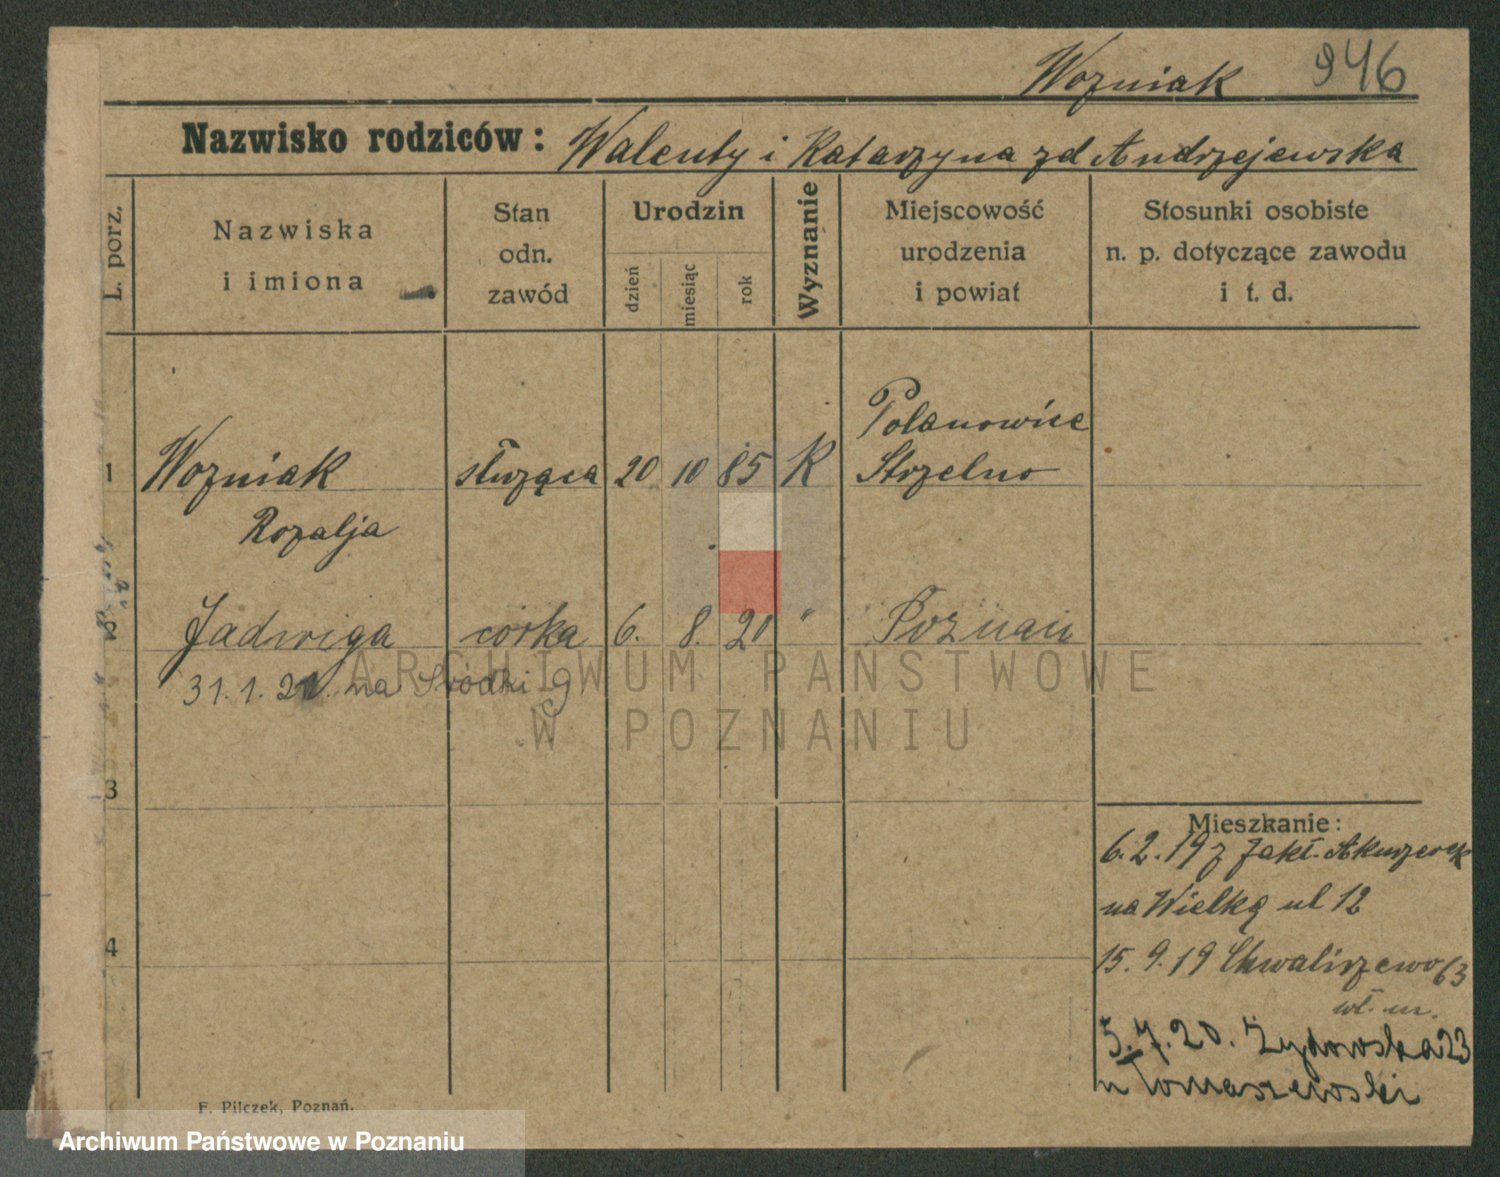 Wozniak 946
Nazwisko rodziców: Walenty i Katarzyna zd Andrzejewska
L. porz.
Nazwiska
i imiona
Stan
odn.
zawód
Urodzin
dzień
miesiąc
rok
Wyznanie
Miejscowość
urodzenia
i powiat
Stosunki osobiste
n. p. dotyczące zawodu
i t. d.
Polanowice
1 Wozniak służąca 20 10 85 K Strzelno
Rozalja
Jadwiga córka 6. 8. 20 " Poznań
31.1.21. na Śródki 9
ARCHIWUM PAŃSTWOWE
W POZNANIU
3
Mieszkanie:
6.2.19 z Zakł. Akuszerek
na Wielką ul 12
4
15.9.19 Chwaliszewo 63
wł. m.
5.7.20. Żydowska 23
u Tomaszewski
F. Pilczek, Poznań.
Archiwum Państwowe w Poznaniu